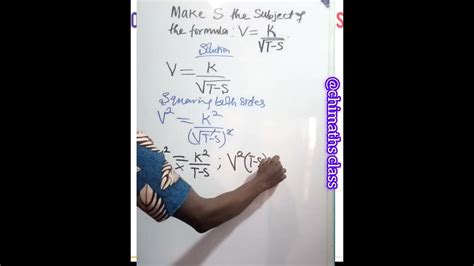 Make S the subject of
the formula: V = K/√T-S
Solution
V = K/√T-S
Squaring both sides
V² = K²/(√T-S)²
² = K²/T-S ; V²(T-S)
@chimaths class